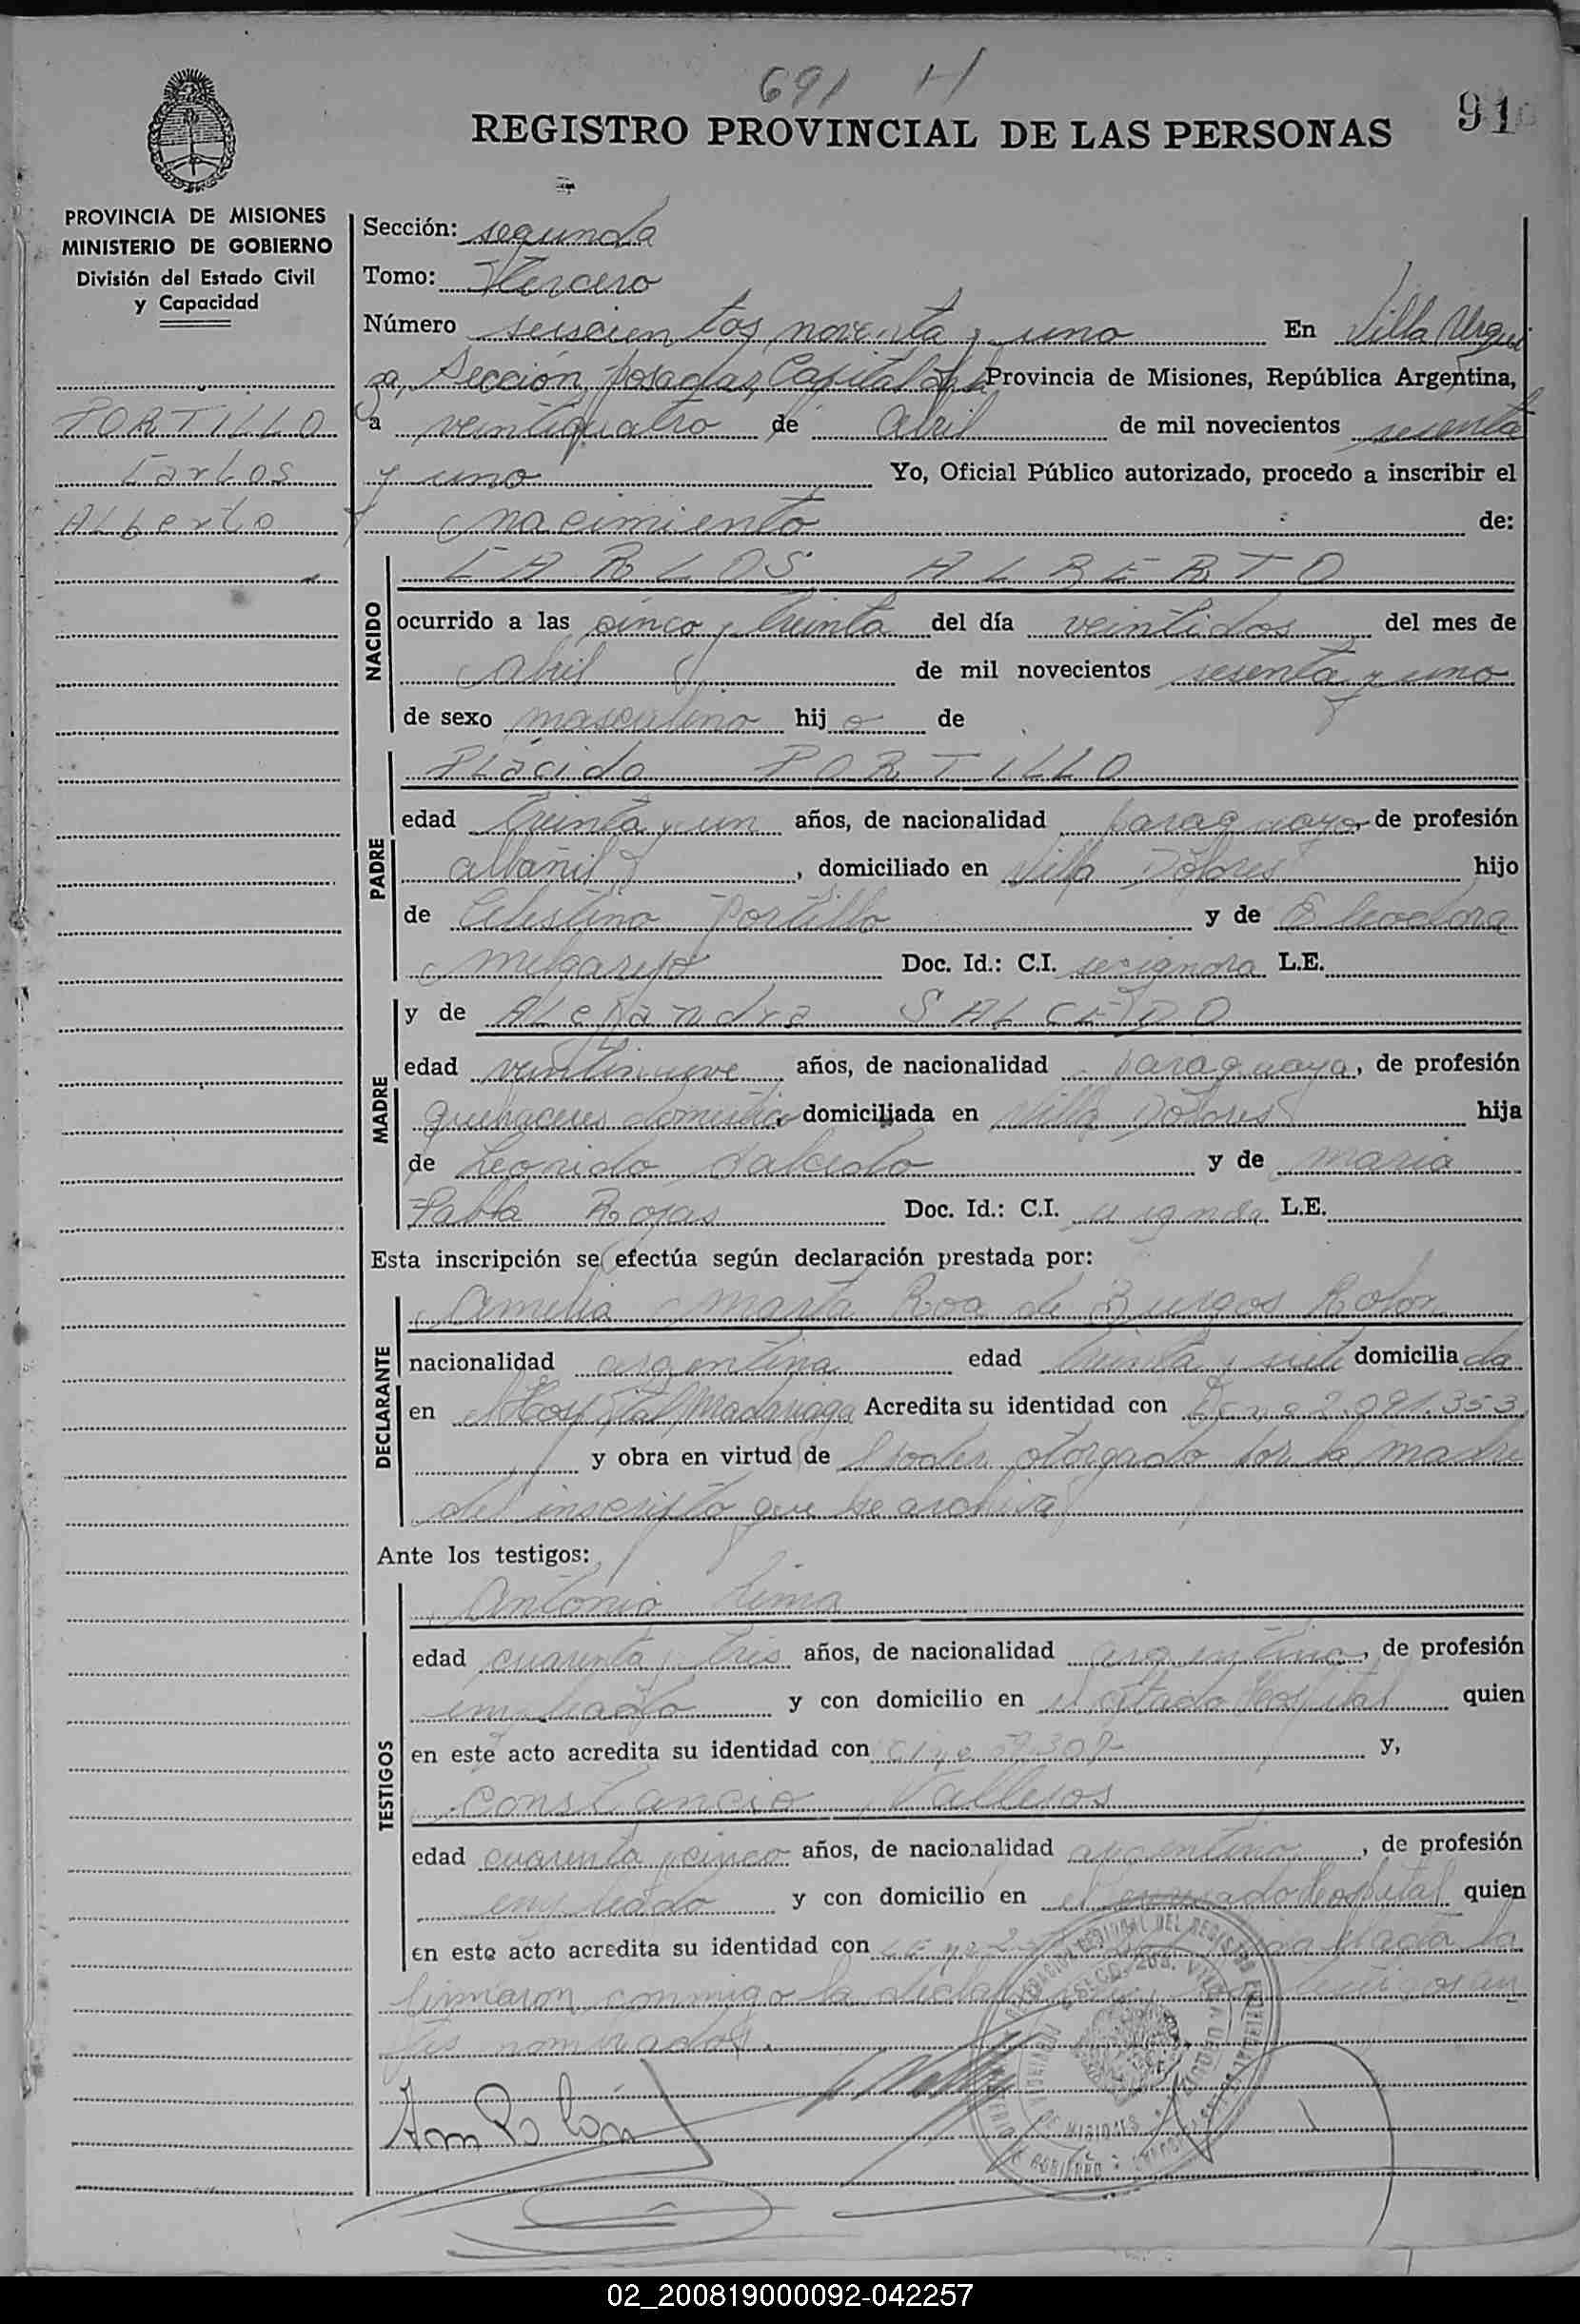 691 H
REGISTRO PROVINCIAL DE LAS PERSONAS
91
PROVINCIA DE MISIONES
MINISTERIO DE GOBIERNO
División del Estado Civil
y Capacidad
PORTILLO
Carlos
Alberto
Sección: segunda
Tomo: Tercero
Número seiscientos noventa y uno En Villa Urqui
za, Sección Posadas, Capital de la Provincia de Misiones, República Argentina,
a veintiquatro de Abril de mil novecientos sesenta
y uno Yo, Oficial Público autorizado, procedo a inscribir el
nacimiento de:
NACIDO
CARLOS ALBERTO
ocurrido a las cinco y treinta del día veintidos del mes de
Abril de mil novecientos sesenta y uno
de sexo masculino hijo de
PADRE
Plácido PORTILLO
edad treinta y un años, de nacionalidad paraguayo, de profesión
albañil, domiciliado en Villa Dolores hijo
de Celestino Portillo y de Eleodora
Melgarejo Doc. Id.: C.I. se ignora L.E.
MADRE
y de Alejandra SALCEDO
edad veintinueve años, de nacionalidad paraguaya, de profesión
quehaceres domésticos domiciliada en Villa Dolores hija
de Leonido Salcedo y de María
Pabla Rojas Doc. Id.: C.I. se ignora L.E.
Esta inscripción se efectúa según declaración prestada por:
DECLARANTE
Amelia Marta Roa de Burgos Rolón
nacionalidad argentina edad treinta y siete domiciliada
en Hospital Madariaga Acredita su identidad con 2.091.353
y obra en virtud de poder otorgado por la madre
del inscripto que se archiva
Ante los testigos:
TESTIGOS
Antonio Lima
edad cuarenta y tres años, de nacionalidad argentino, de profesión
empleado y con domicilio en el citado Hospital quien
en este acto acredita su identidad con y,
Constancio Vallejos
edad cuarenta y cinco años, de nacionalidad argentino, de profesión
empleado y con domicilio en el Hospital quien
en este acto acredita su identidad con
firmaron conmigo la testigos an
tes nombrados.
02_200819000092-042257